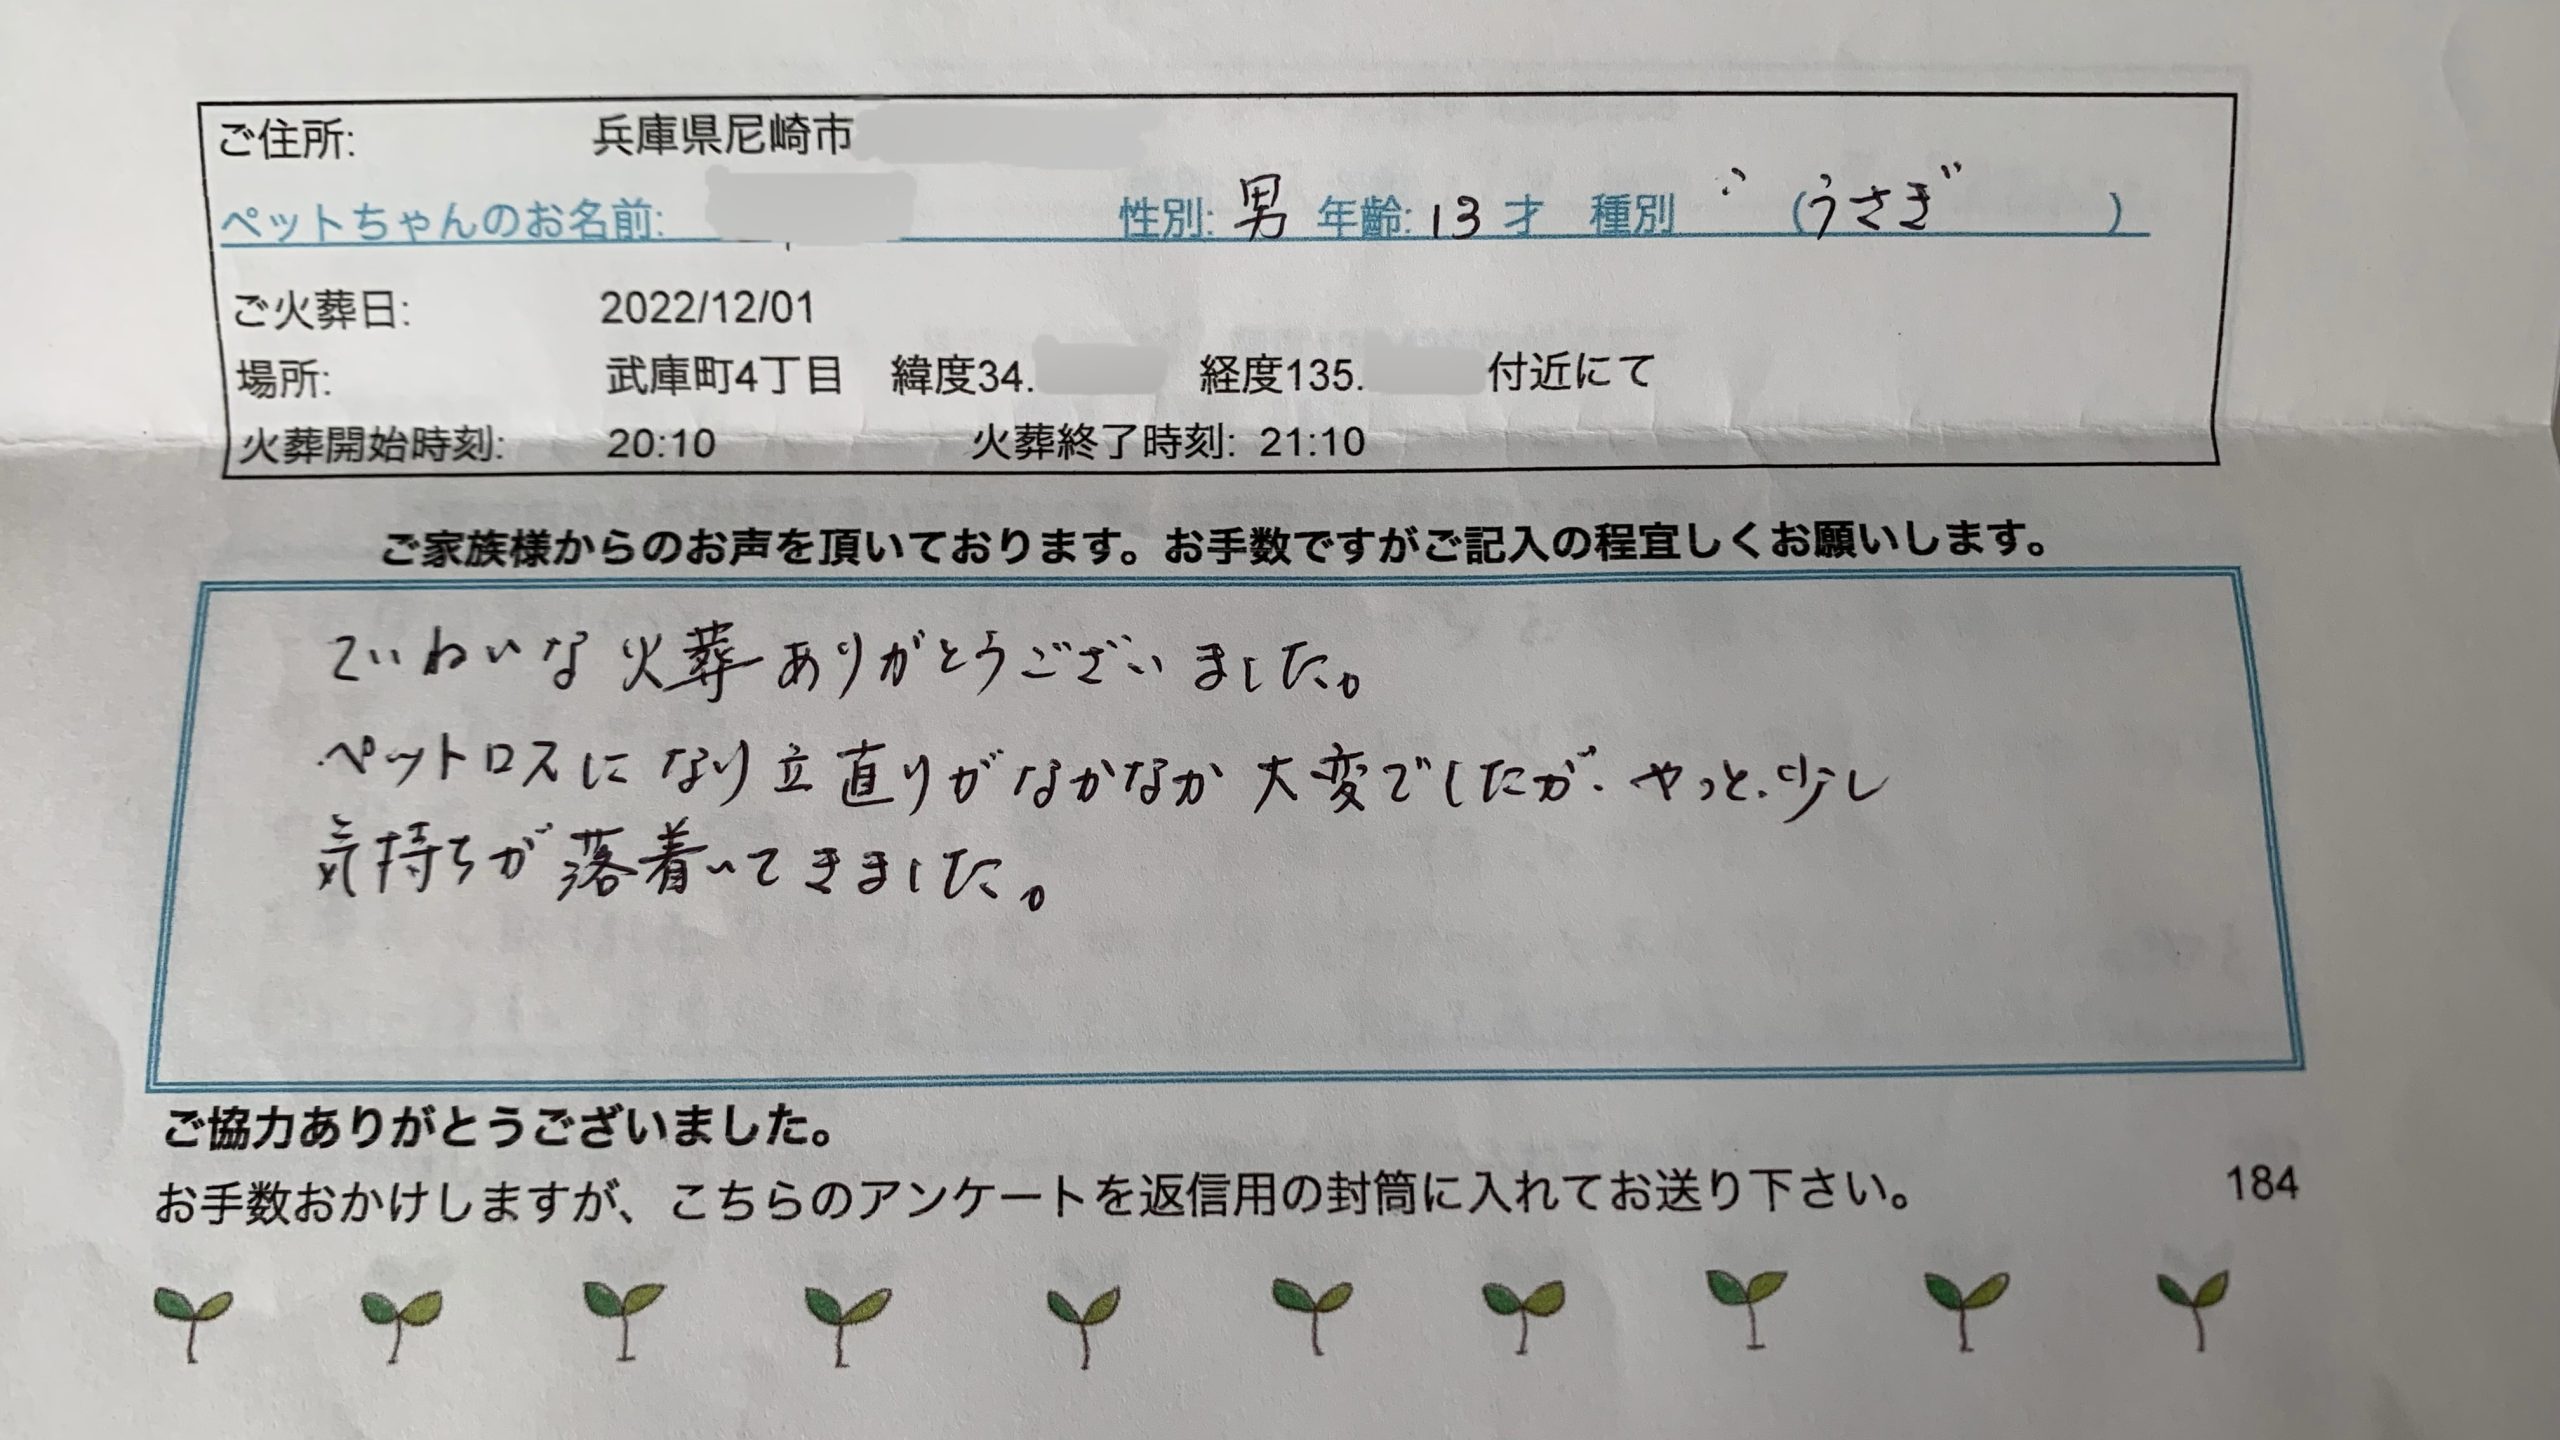 ご住所: 兵庫県尼崎市
ペットちゃんのお名前: 性別: 男 年齢: 13 才 種別 (うさぎ )
ご火葬日: 2022/12/01
場所: 武庫町4丁目 緯度34. 経度135. 付近にて
火葬開始時刻: 20:10 火葬終了時刻: 21:10
ご家族様からのお声を頂いております。お手数ですがご記入の程宜しくお願いします。
ていねいな火葬ありがとうございました。
ペットロスになり立直りがなかなか大変でしたが、やっと、少し
気持ちが落着いてきました。
ご協力ありがとうございました。
お手数おかけしますが、こちらのアンケートを返信用の封筒に入れてお送り下さい。 184